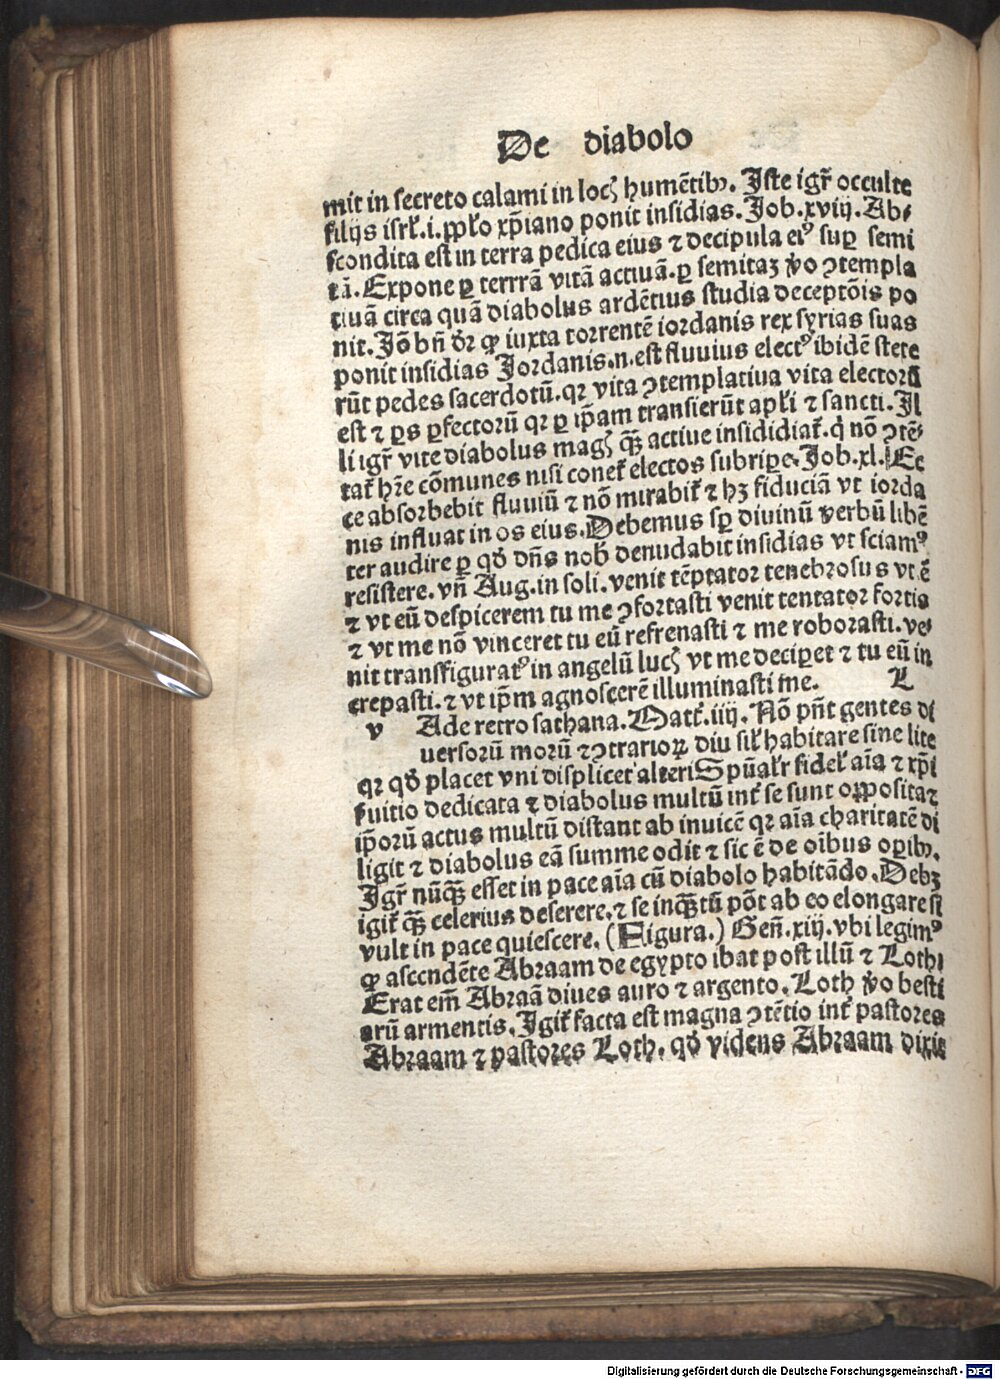 De diabolo
mit in secreto calami in locꝭ humẽtibꝰ. Iste igr̃ occulte
filijs isrł.i.pp̱ło xp̃iano ponit insidias. Iob.xviij. Ab⸗
scondita est in terra pedica eius ⁊ decipula eiꝰ suꝑ semi
tã. Expone ꝑ terrrã vitã actiuã. ꝑ semitaꝫ v̊o ꝯtempla
tiuã circa quã diabolus ardẽtius studia deceptõis po
nit. Iõ bñ dr̃ ꝙ iuxta torrentẽ iordanis rex syrias suas
ponit insidias Iordanis.n.est fluuius electꝰ ibidẽ stete
rũt pedes sacerdotũ. qꝛ vita ꝯtemplatiua vita electorũ
est ⁊ ꝑs ꝑfectorũ qꝛ ꝑ ip̃am transierũt apłi ⁊ sancti. Il
li igr̃ vite diabolus magꝭ ꝙ̃ actiue insididiat̃. q̇ nõ ꝯtẽ⸗
tat̃ hr̃e cõmunes nisi conet̃ electos subriꝑe. Iob.xl. Ec
ce absorbebit fluuiũ ⁊ nõ mirabit̃ ⁊ hꝫ fiduciã vt iorda
nis influat in os eius. Debemus sꝑ diuinũ verbũ libẽ
ter audire ꝑ qď dñs nob̃ denudabit insidias vt sciamꝰ
resistere. vñ Aug. in soli. venit tẽptator tenebrosus vt ẽ
⁊ vt eũ despicerem tu me ꝯfortasti venit tentator fortis
⁊ vt me nõ vinceret tu eũ refrenasti ⁊ me roborasti. ve⸗
nit transfiguratꝰ in angelũ lucꝭ vt me deciꝑet ⁊ tu eũ in
crepasti. ⁊ vt ip̃m agnoscerẽ illuminasti me. L
v Ade retro sathana. Matt̃. iiij. Nõ pñt gentes di
uersorũ morũ ⁊ ꝯtrarioꝝ diu sil̃ habitare sine lite
qꝛ qď placet vni displicet alteri Spũal̃r fidel̃ aĩa ⁊ xp̃i
ßuitio dedicata ⁊ diabolus multũ int̃ se sunt opposita ⁊
ip̃orũ actus multũ distant ab inuicẽ qꝛ aĩa charitatẽ di
ligit ⁊ diabolus eã summe odit ⁊ sic ẽ de oĩbus oꝑibꝰ.
Igr̃ nũꝙ̃ esset in pace aĩa cũ diabolo habitãdo. Debꝫ
igit̃ ꝙ̃ celerius deserere. ⁊ se inꝙ̃tũ põt ab eo elongare si
vult in pace quiescere. (Figura.) Geñ. xiij. vbi legimꝰ
ꝙ ascendẽte Abraam de egypto ibat post illũ ⁊ Loth.
Erat em̃ Abraã diues auro ⁊ argento. Loth v̊o besti
arũ armentis. Igit̃ facta est magna ꝯtẽtio int̃ pastores
Abraam ⁊ pastores Loth. qď videns Abraam dixit